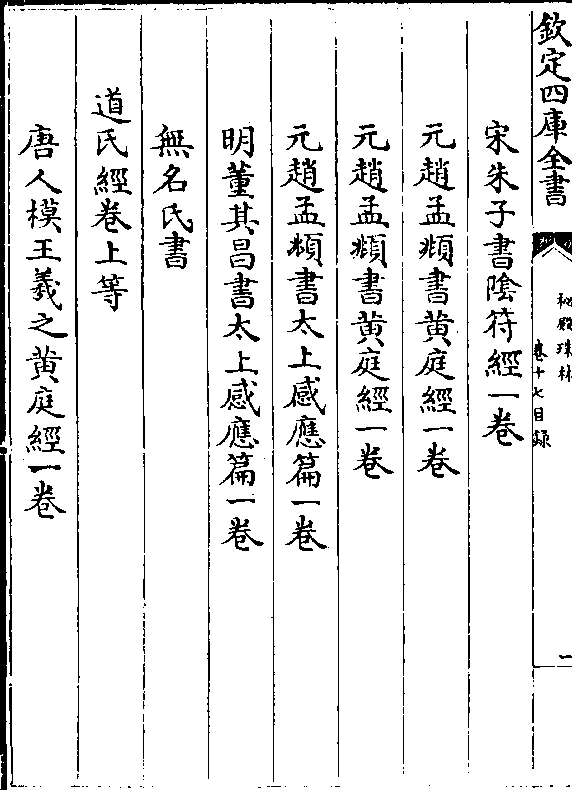 欽定四庫全書
秘殿珠林
卷十七目録
一
宋朱子書陰符經一卷
元趙孟頫書黄庭經一卷
元趙孟頫書黄庭經一卷
元趙孟頫書太上感應篇一卷
明董其昌書太上感應篇一卷
無名氏書
道氏經卷上等
唐人模王羲之黄庭經一卷